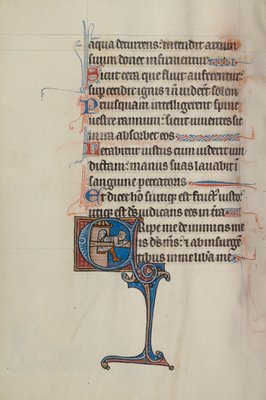 aqua decurrens: intendit arcum
suum donec infirmentur
Sicut cera que fluit auferentur:
sup cecidit ignis ⁊ nō viderūt solem
Priusquam intelligerent spine
vestre ramnum: sicut viventes sic
in ira absorbet eos
Letabitur iustus cum viderit vin
dictam: manus suas lavabit ī
sanguine peccatoris
Et dicet hō si utiqȝ est fruct iusto:
utiqȝ est dš iudicans eos in tra
Eripe me de inimicis me
is dš mš: ⁊ ab insurgē
tibus in me libʼa me